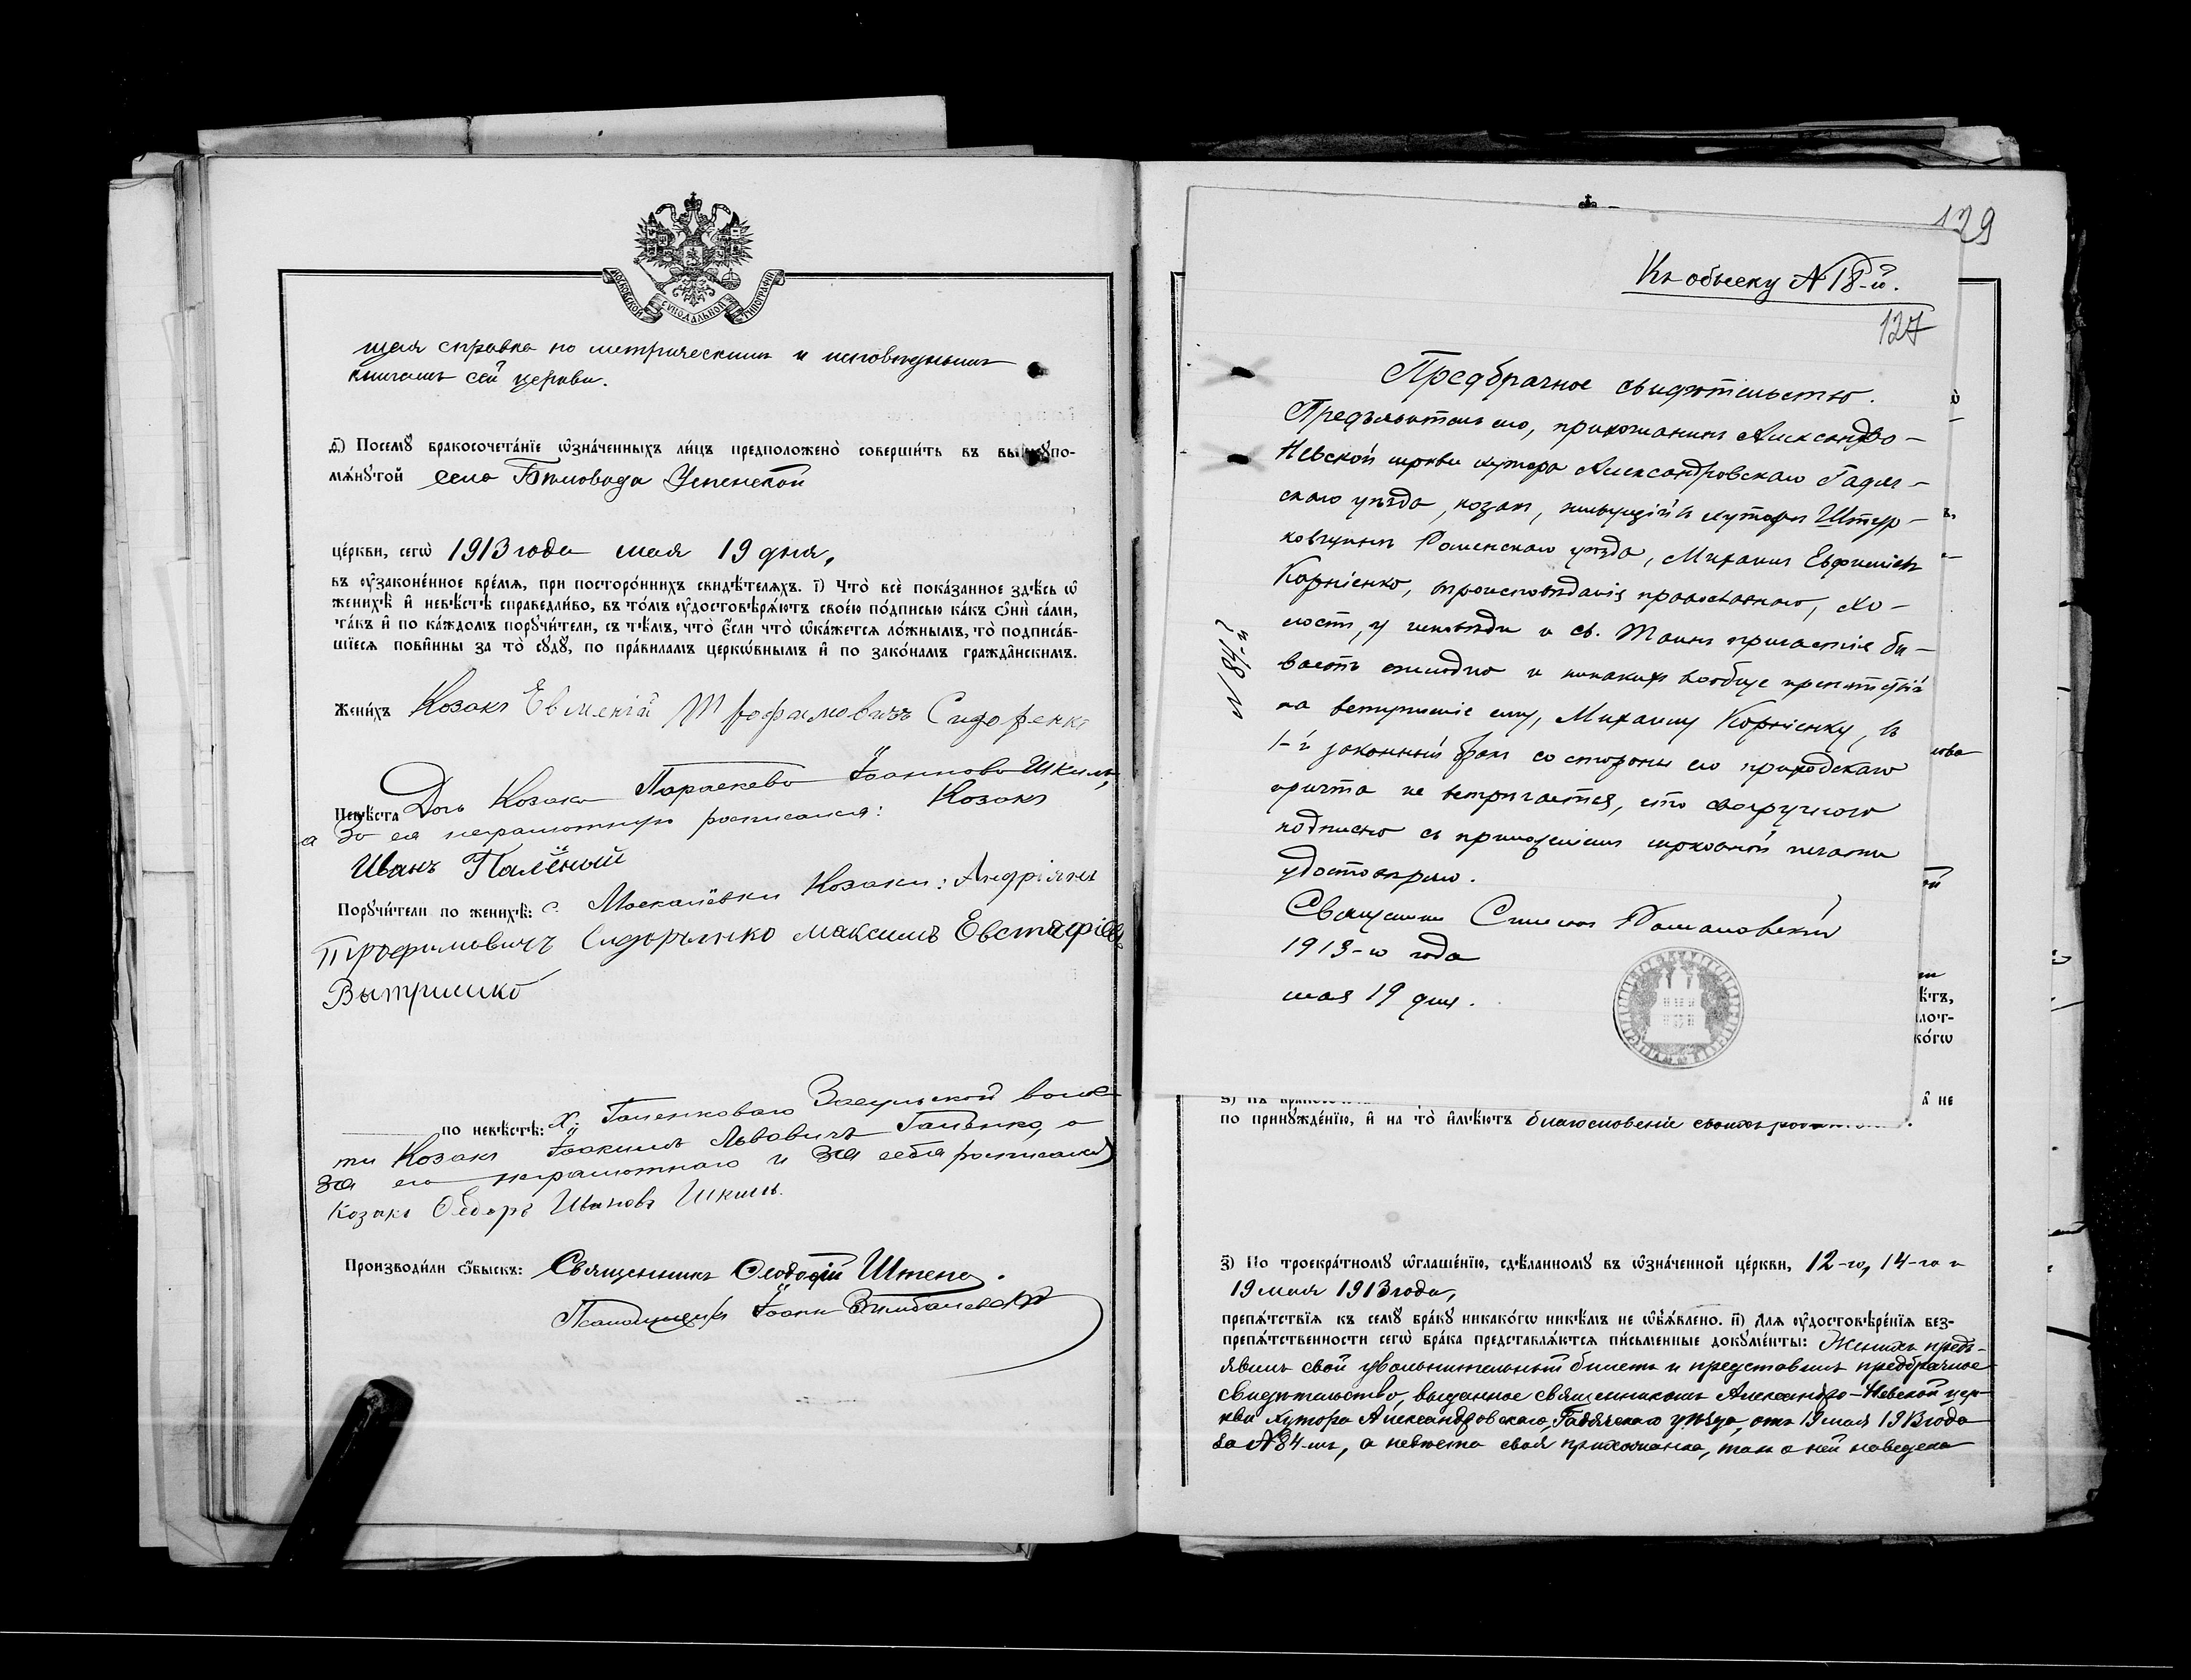 МОСКОВСКОЙ СѴНОДАЛЬНОЙ ТИПОГРАФІИ
щая справка по метрическимъ и исповѣднымъ
книгамъ сей церкви.
д҃і) Посемꙋ̀ бракосочета́нїе ѡ҆зна́ченныхъ ли́цъ предположено̀ соверши́ть въ вы
мѧ́нꙋтой села Бѣловода Успенской
це́ркви, сегѡ̀ 1913 года мая 19 дня,
въ ᲂу҆законе́нное вре́мѧ, при посторо́ннихъ свидѣ́телѧхъ. і҃) Что̀ всѐ пока́занное здѣ́сь ѡ҆
женихѣ̀ и҆ невѣ́стѣ справедли́во, въ то́мъ ᲂу҆достовѣрѧ́ютъ свое́ю по́дписью ка́къ ѻ҆нѝ са́ми,
та́къ и҆ по ка́ждомъ порꙋчи́тели, съ тѣ́мъ, что̀ є҆́сли что̀ ѡ҆ка́жетсѧ ло́жнымъ, то̀ подписа́в-
шїесѧ пови́нны за то̀ сꙋдꙋ̀, по пра́виламъ церкѡ́внымъ и҆ по зако́намъ гражда́нскимъ.
Жени́хъ Козакъ Евменій Трофимовичъ Сидоренко
Невѣ́ста Дочь Козака Параскева Іоаннова Шкиль,
а за ея неграмотную росписался: Козакъ
Иванъ Палёный
Порꙋчи́тели по женихѣ̀: с. Москалёвки Козаки: Андріянъ
Трофимовичъ Сидоренко Максимъ Евстафіевъ
по невѣ́стѣ: х. Галенковаго Засульской волос
ти Козакъ Іоакимъ Львовичъ Галенко, а
за его неграмотнаго и за себя росписался
Козакъ Ѳедоръ Ивановъ Шкиль.
Производи́ли ѻ҆́быскъ: Священникъ Ѳеодосій Штепа.
Псаломщикъ Іоаннъ
129
Къ обыску № 18-й.
127
Предбрачное свидѣтельство.
Предъявитель сего, прихожанинъ Александро-
Невской церкви хутора Александровскаго Гадяч-
скаго уѣзда, козакъ, живущій въ хуторѣ Штур-
ковщинѣ Роменскаго уѣзда, Михаилъ Евфиміевъ
Корніенко, вроисповѣданія православнаго, хо-
лостъ, у исповѣди и св. Таинъ причастія бы-
ваетъ ежегодно и никакихъ вообще препятствій
на вступленіе ему, Михаилу Корніенку, въ
1-й законный бракъ со стороны его приходскаго
причта не встрѣчается, что своручною
подписью съ приложеніемъ церковной печати
удостовѣряю.
Священникъ Симеонъ Романовскій
1913-го года
мая 19 дня.
№ 84-й
по принꙋжде́нїю, и҆ на то̀ и҆мѣ́ютъ благословеніе своихъ
з҃) По троекра́тномꙋ ѡ҆глаше́нїю, сдѣ́ланномꙋ въ ѡ҆зна́ченной це́ркви, 12-го, 14-го и
19 мая 1913 года,
препѧ́тствїѧ къ семꙋ̀ бра́кꙋ никако́гѡ никѣ́мъ не ѡ҆б̾ѧ́влено. и҃) Длѧ ᲂу҆достовѣре́нїѧ без-
препѧ́тственности сегѡ̀ бра́ка представлѧ́ютсѧ пи́сьменные докꙋме́нты: Женихъ предъ-
явилъ свой увольнительный билетъ и представилъ предбрачное
свидѣтельство, выданное священникомъ Александро-Невской цер-
кви хутора Александровскаго, Гадячскаго уѣзда, отъ 19 мая 1913 года
за № 84-мъ, а невѣста своя прихожанка, такъ о ней наведена